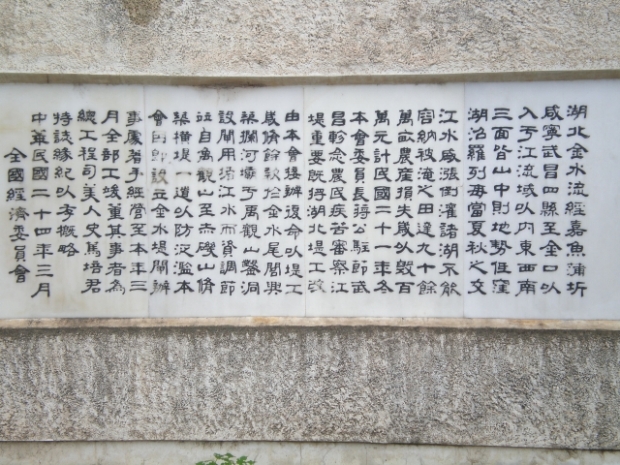 湖北金水流經嘉魚蒲圻
咸寧武昌四縣至金口以
入于江流域以內東西南
三面皆山中則地勢低窪
湖沼羅列每當夏秋之交
江水盛漲倒灌諸湖不能
容納被淹之田達九十餘
萬畝農產損失歲以數百
萬元計民國二十一年冬
本會委員長蔣公駐節武
昌軫念農民疾苦審察江
堤重要既將湖北堤工改
由本會接辦復命以堤工
歲脩餘款於金水尾閭興
築攔河壩于禹觀山鑿洞
設閘用堵江水而資調節
並自禹觀山至赤磯山脩
築橫堤一道以防泛濫本
會因即設立金水堤閘辦
事處着手經營至本年三
月全部工竣董其事者為
總工程司美人史篤培君
特誌緣起以考概略
中華民國二十四年三月
全國經濟委員會